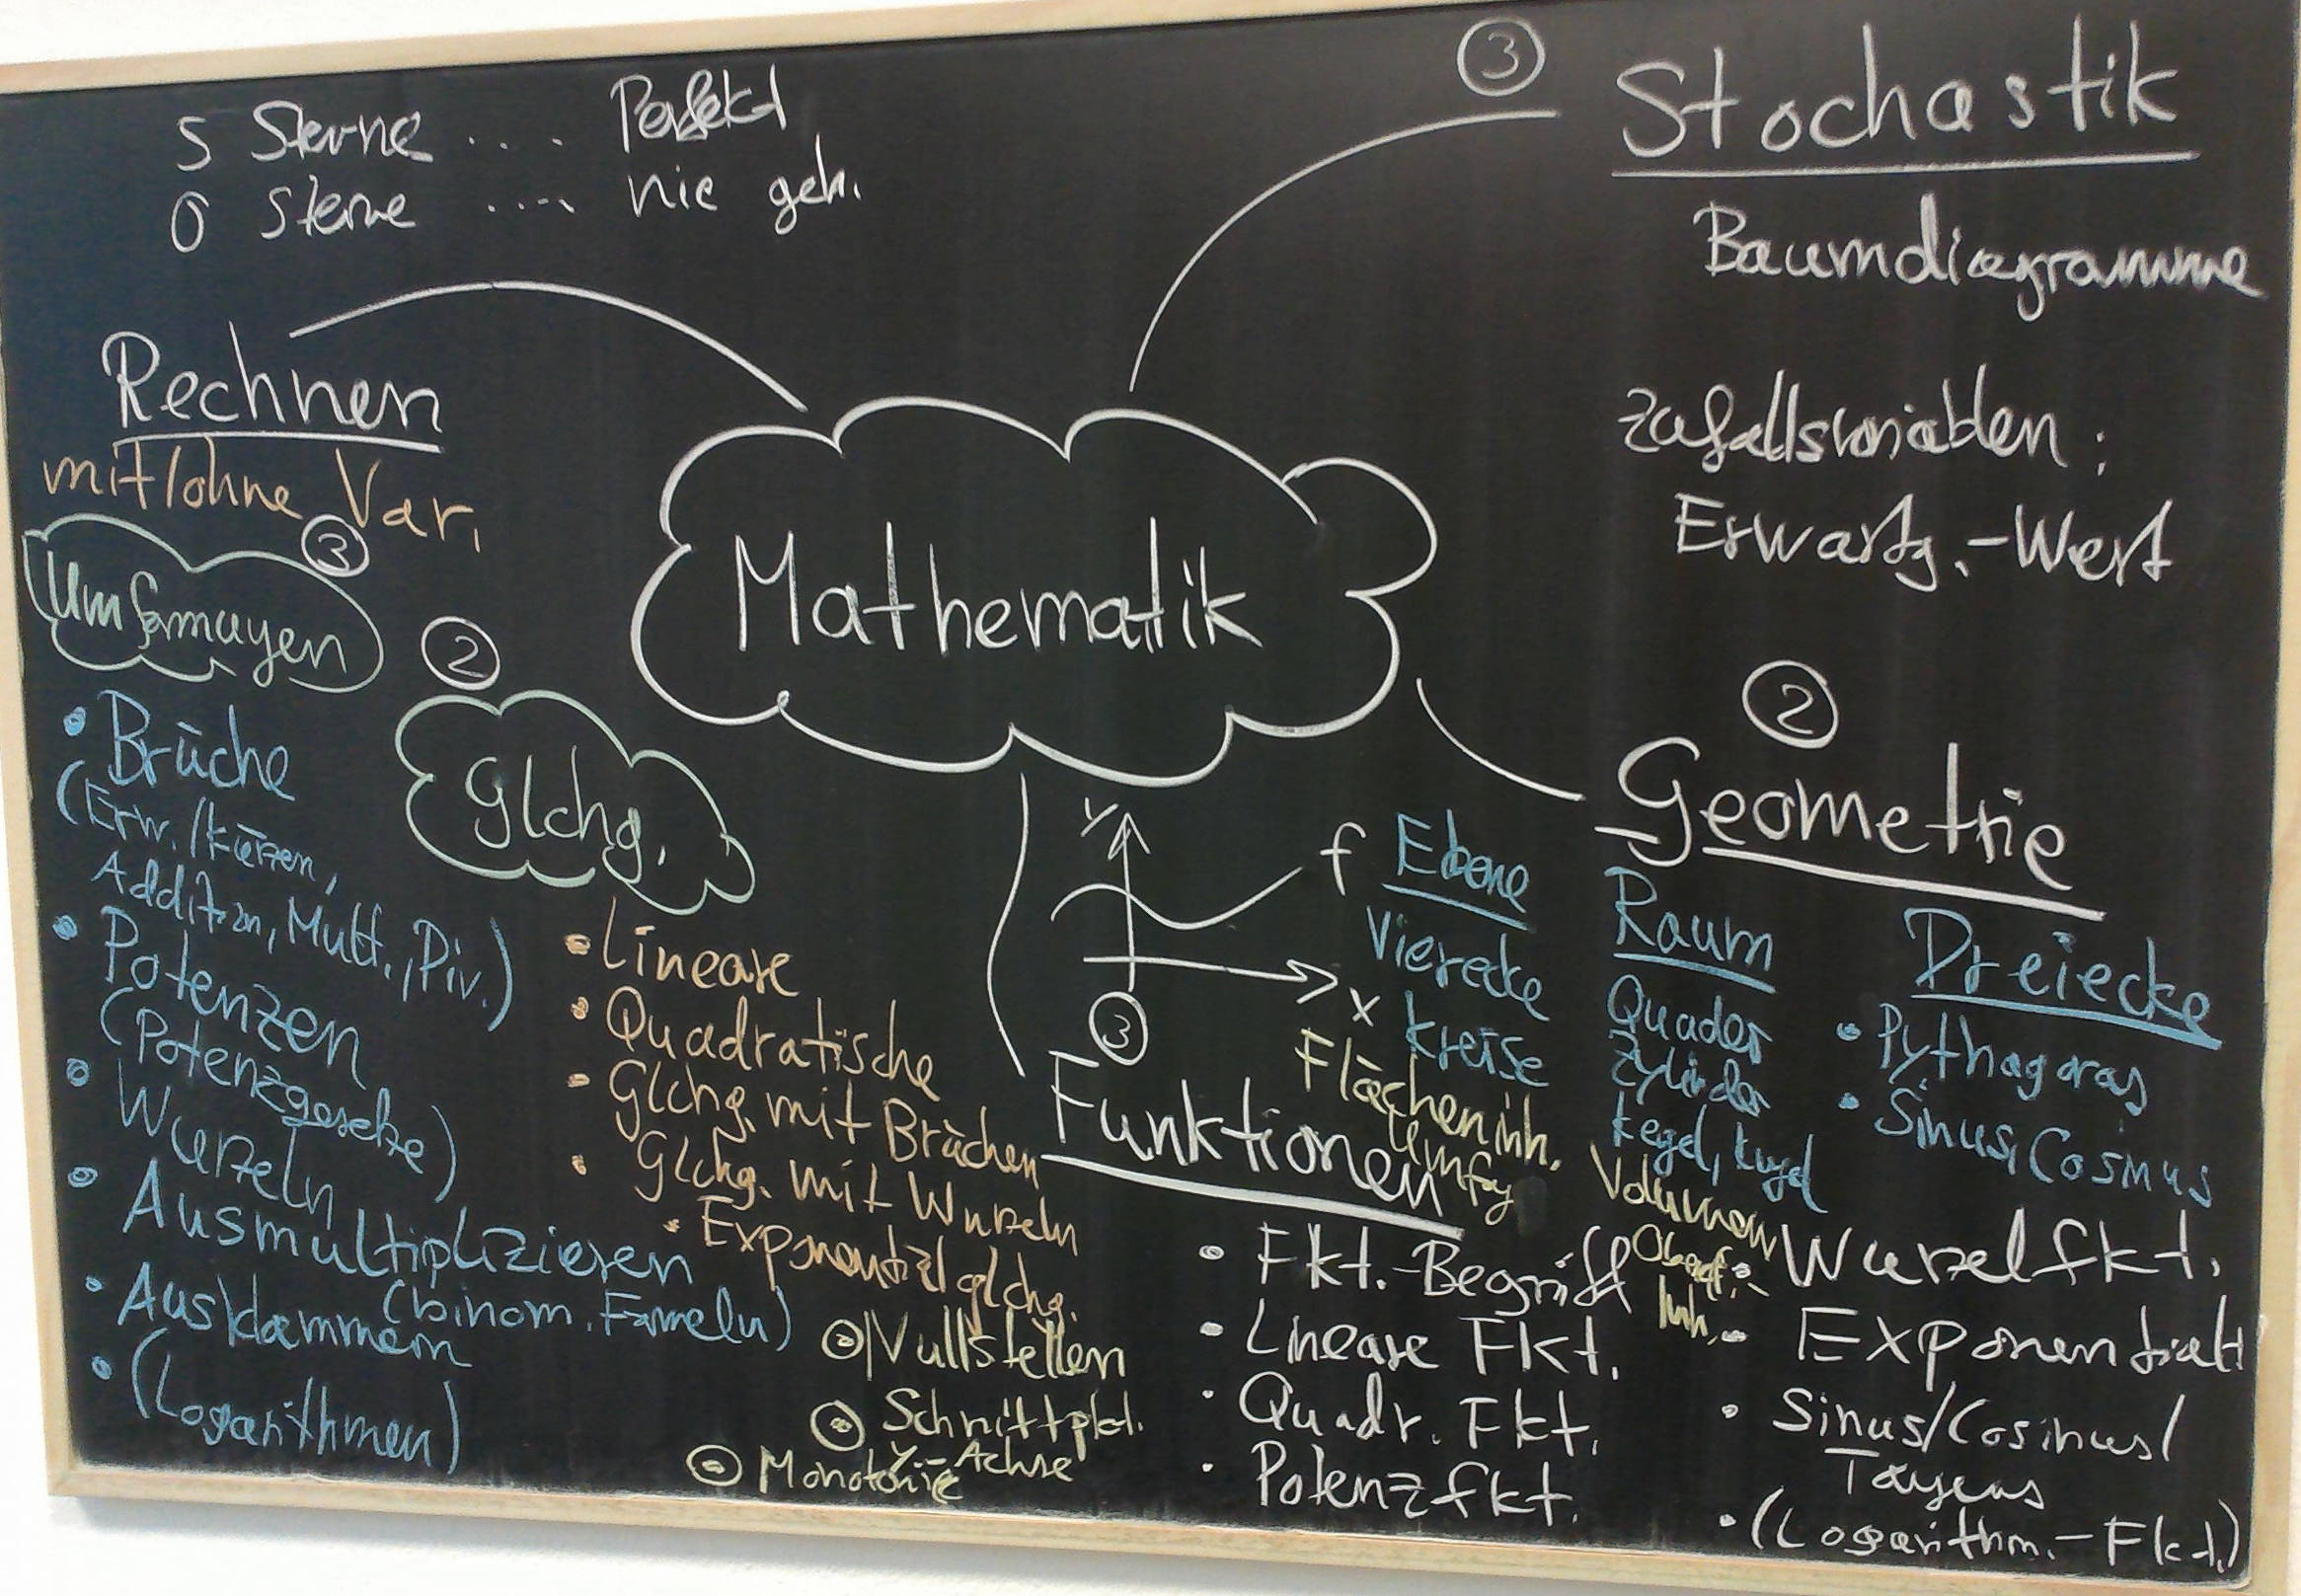 5 Sterne .... Perfekt
0 Sterne .... nie geh.
Rechnen
mit/ohne Var.
3
Umformungen
• Brüche
(Erw./kürzen,
Addition, Mult., Div.)
• Potenzen
(Potenzgesetze)
• Wurzeln
• Ausmultiplizieren
(binom. Formeln)
• Ausklammern
• (Logarithmen)
2
Glchg.
• Lineare
• Quadratische
• Glchg. mit Brüchen
• Glchg. mit Wurzeln
• Exponentialglchg.
Mathematik
3
Stochastik
Baumdiagramme
Zufallsvariablen:
Erwartg.-Wert
2
Geometrie
Ebene
Vierecke
Kreise
Flächeninh.
Umfg
Raum
Quader
Zylinder
Kegel, Kugel
Volumen
Oberfl.-
Inh.
Dreiecke
• Pythagoras
• Sinus, Cosinus
y
f
x
3
Funktionen
• Fkt.-Begriff
• Lineare Fkt.
• Quadr. Fkt.
• Potenzfkt.
• Wurzelfkt.
• Exponentialf
• Sinus/Cosinus/
Tangens
• (Logarithm.-Fkt.)
Nullstellen
Schnittpkt.
y-Achse
Monotonie